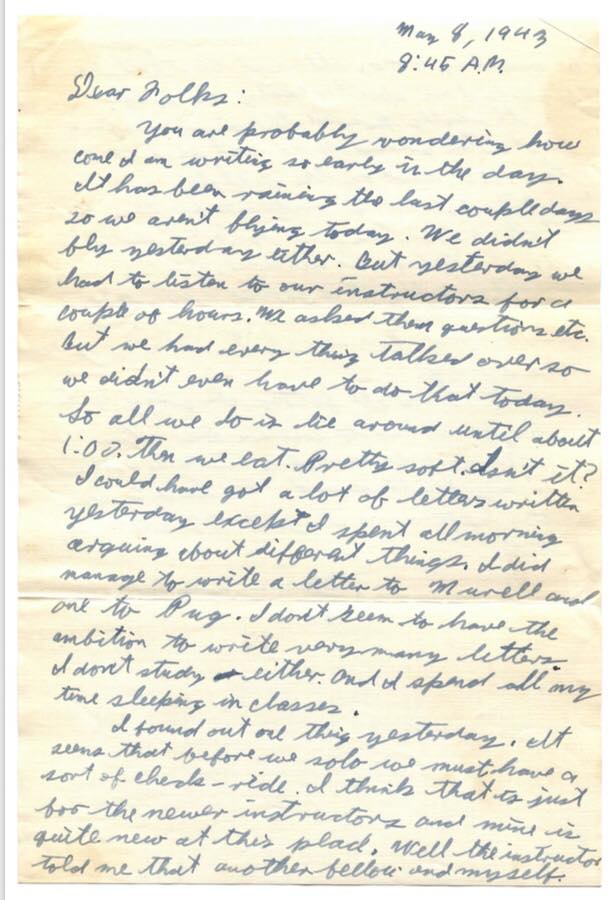 May 8, 1943
8:45 A.M.
Dear Folks:
You are probably wondering how
come I am writing so early in the day.
It has been raining the last couple days
so we aren't flying today. We didn't
fly yesterday either. But yesterday we
had to listen to our instructors for a
couple of hours. We asked them questions etc.
But we had every thing talked over so
we didn't even have to do that today.
So all we do is lie around until about
1:00. Then we eat. Pretty soft. Isn't it?
I could have got a lot of letters written
yesterday except I spent all morning
arguing about different things. I did
manage to write a letter to Murell and
one to Pug. I don't seem to have the
ambition to write very many letters.
I don't study either. And I spend all my
time sleeping in classes.
I found out one thing yesterday. It
seems that before we solo we must have a
sort of check-ride. I think that is just
for the newer instructors and mine is
quite new at this place. Well the instructor
told me that another fellow and myself.